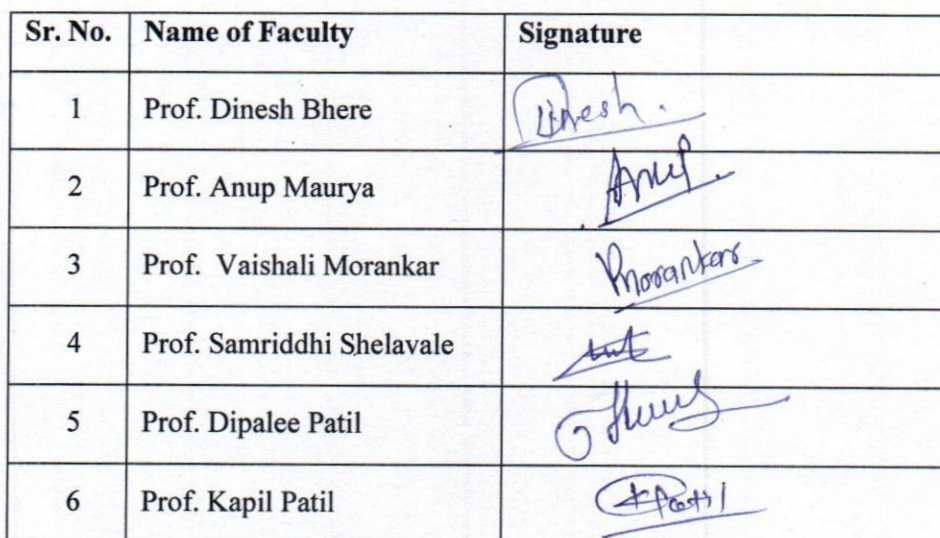 Sr. No. Name of Faculty Signature
1 Prof. Dinesh Bhere Dinesh.
2 Prof. Anup Maurya Anup.
3 Prof. Vaishali Morankar Morankar
4 Prof. Samriddhi Shelavale
5 Prof. Dipalee Patil
6 Prof. Kapil Patil KPatil